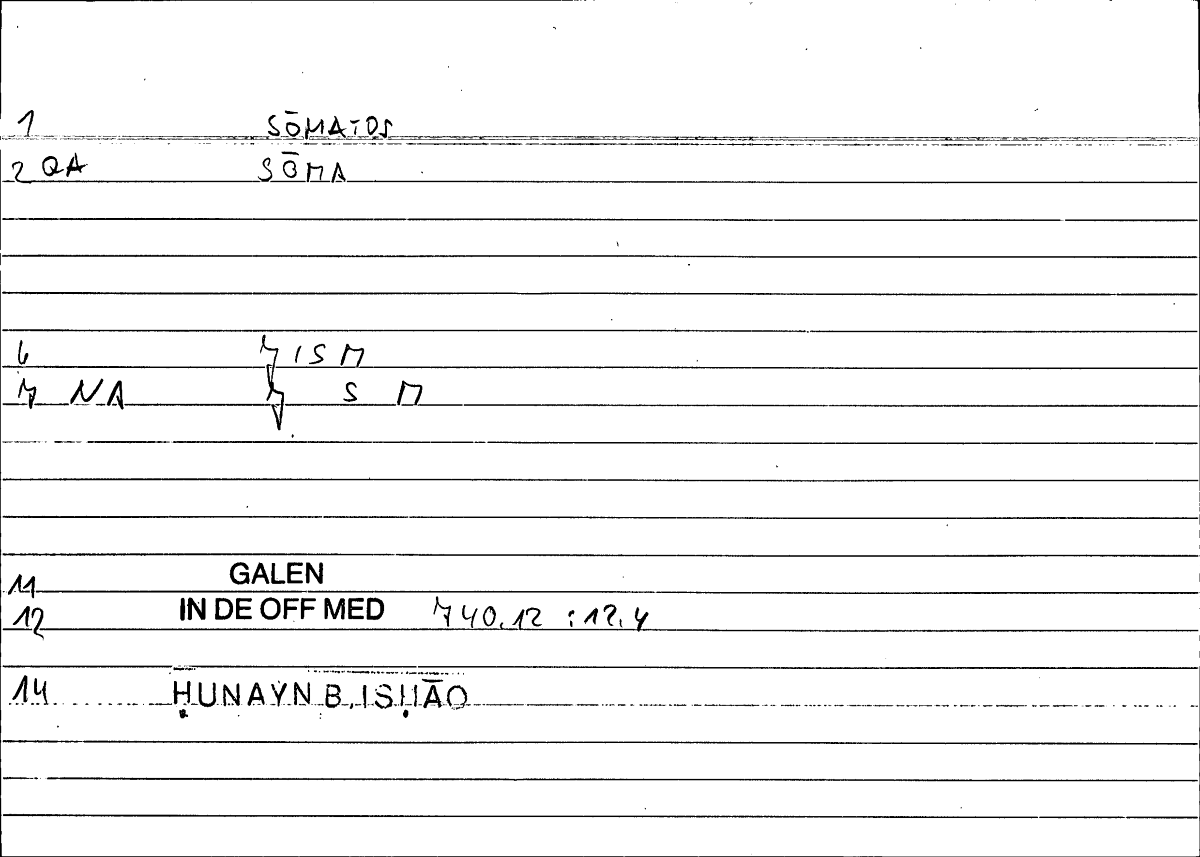 1 SŌMATOS
2 QA SŌMA
6 ǦISM
7 NA Ǧ S M
11 GALEN
12 IN DE OFF MED 740.12 : 12.4
14 ḤUNAYN B. ISḤĀQ